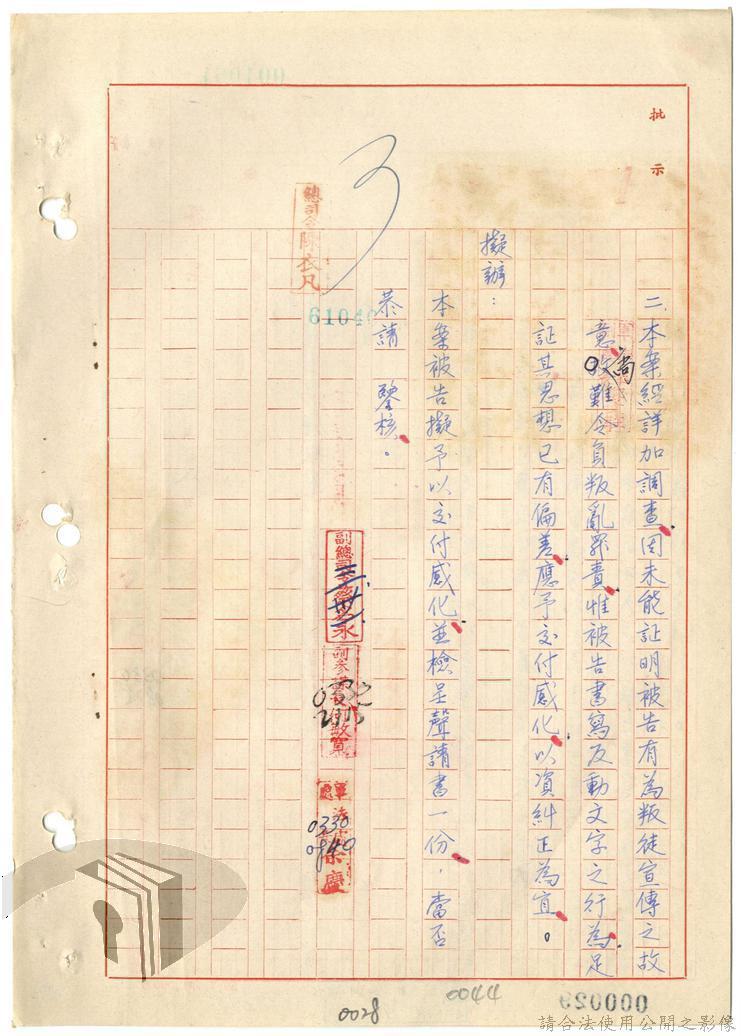 批示
二、本案經詳加調查,因未能証明被告有為叛徒宣傳之故
意,尚難令負叛亂罪責,惟被告書寫反動文字之行為,足
証其思想已有偏差,應予交付感化,以資糾正為宜。
擬辦:
本案被告擬予以交付感化,並檢呈聲請書一份,當否
恭請 鑒核。
總司令陳衣凡
3
0330
0940
0028
0044
000029
請合法使用公開之影像